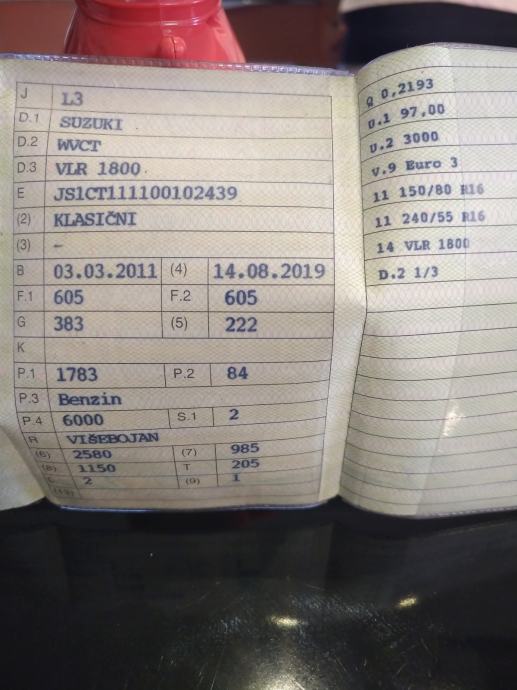 J L3
D.1 SUZUKI
D.2 WVCT
D.3 VLR 1800
E JS1CT111100102439
(2) KLASIČNI
(3) –
B 03.03.2011 (4) 14.08.2019
F.1 605 F.2 605
G 383 (5) 222
K
P.1 1783 P.2 84
P.3 Benzin
P.4 6000 S.1 2
R VIŠEBOJAN
(6) 2580 (7) 985
(8) 1150 T 205
L 2 (9) 1
Q 0,2193
U.1 97,00
U.2 3000
V.9 Euro 3
11 150/80 R16
11 240/55 R16
14 VLR 1800
D.2 1/3